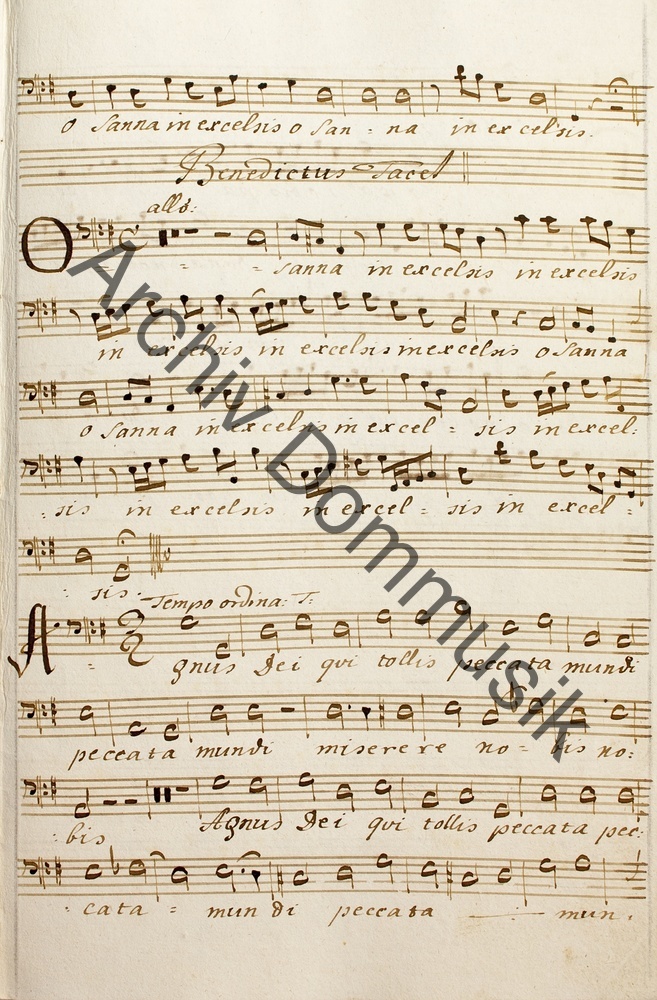 O sanna in excelsis o san - na in excelsis.
Benedictus Tacet
allo:
O - - - sanna in excelsis in excelsis
in excelsis in excelsis in excelsis o sanna
o sanna in excelsis in excel - sis in excel:
: sis in excelsis in excel - sis in excel -
: sis.
Tempo ordina: T:
A - gnus Dei qui tollis peccata mundi
peccata mundi miserere no - bis no:
: bis Agnus Dei qui tollis peccata pec:
: cata - mun di peccata - mun.
Archiv Dommusik